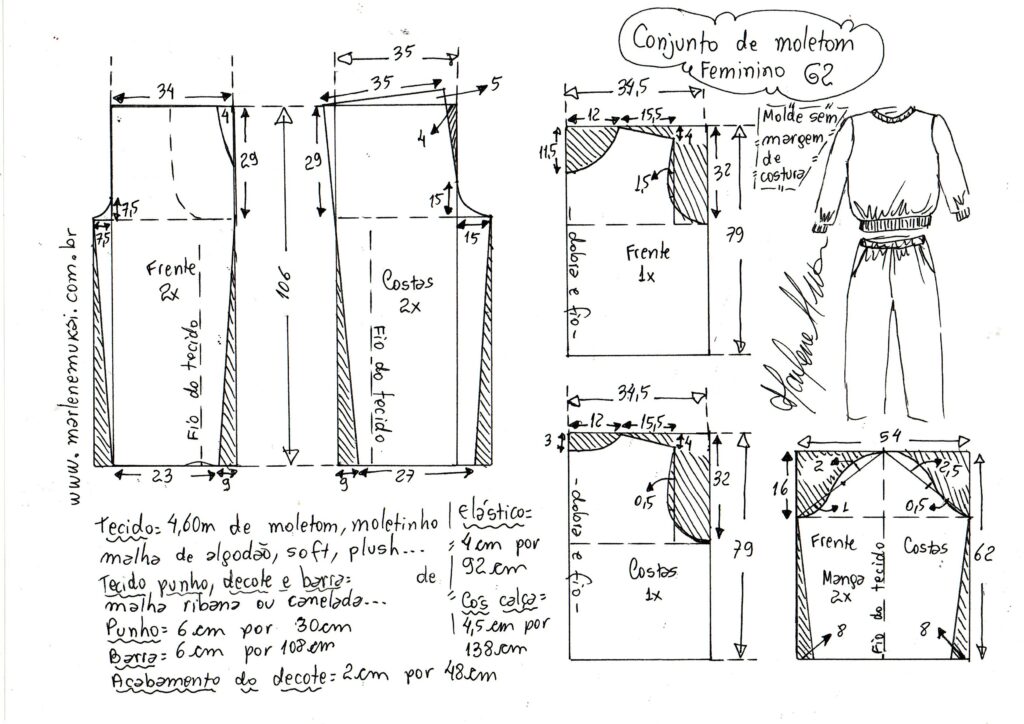 Conjunto de moletom
Feminino G2
Molde sem
margem
de
costura
www.marlenemukai.com.br
34
4
29
7,5
7,5
Frente
2x
Fio do tecido
23
9
106
35
35
5
4
29
15
15
Costas
2x
Fio do tecido
9
27
34,5
12
15,5
11,5
4
1,5
32
79
-dobra e fio-
Frente
1x
34,5
12
15,5
3
4
0,5
32
79
-dobra e fio-
Costas
1x
54
2
2,5
16
1
0,5
Frente
Costas
62
Manga
2x
Fio do tecido
8
8
Tecido= 4,60m de moletom, moletinho
malha de algodão, soft, plush...
Tecido punho, decote e barra= de
malha ribana ou canelada...
Punho= 6 cm por 30cm
Barra= 6 cm por 108cm
Acabamento do decote= 2cm por 48cm
Elástico=
= 4cm por
92cm
Cós calça=
4,5cm por
138cm